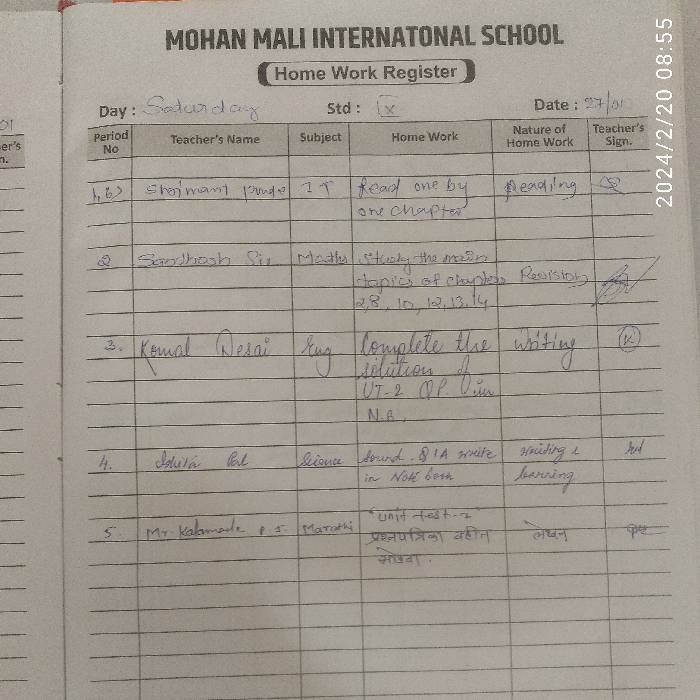 MOHAN MALI INTERNATONAL SCHOOL
Home Work Register
Day : Saturday Std : IX Date : 27/01
Period No Teacher's Name Subject Home Work Nature of Home Work Teacher's Sign.
1,6) IT Read one by Reading
one chapter
2 Santhosh Sir Maths Study the main
topics of chapters Revision
2,8, 10, 12, 13, 14
3. Komal Desai Eng Complete the writing
solution of
UT-2 QP. in
N.B.
4. Science Sound. Q1A write writing &
in Note book learning
5. Mr. P. S. Marathi "Unit test-2"
प्रश्नपत्रिका वहीत लेखन
सोडवा.
01
er's
n.
2024/2/20 08:55